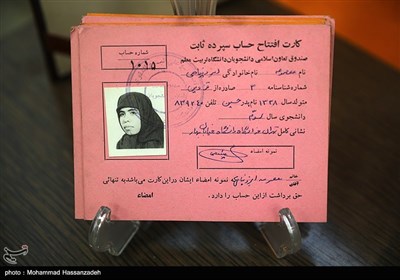 کارت افتتاح حساب سپرده ثابت
شماره حساب
۱۰۱۵
صندوق تعاون اسلامی دانشجویان دانشگاه تربیت معلم
نام معصومه نام خانوادگی
شماره شناسنامه ۳ صادره از
متولد سال ۱۳۳۸ نام پدر حسین تلفن ۸۳۹۲۴۰
دانشجوی سال سوم
نشانی کامل
نمونه امضاء
نمونه امضاء ایشان در این کارت می‌باشد به تنهائی
حق برداشت از این حساب را دارد.
امضاء
photo : Mohammad Hassanzadeh